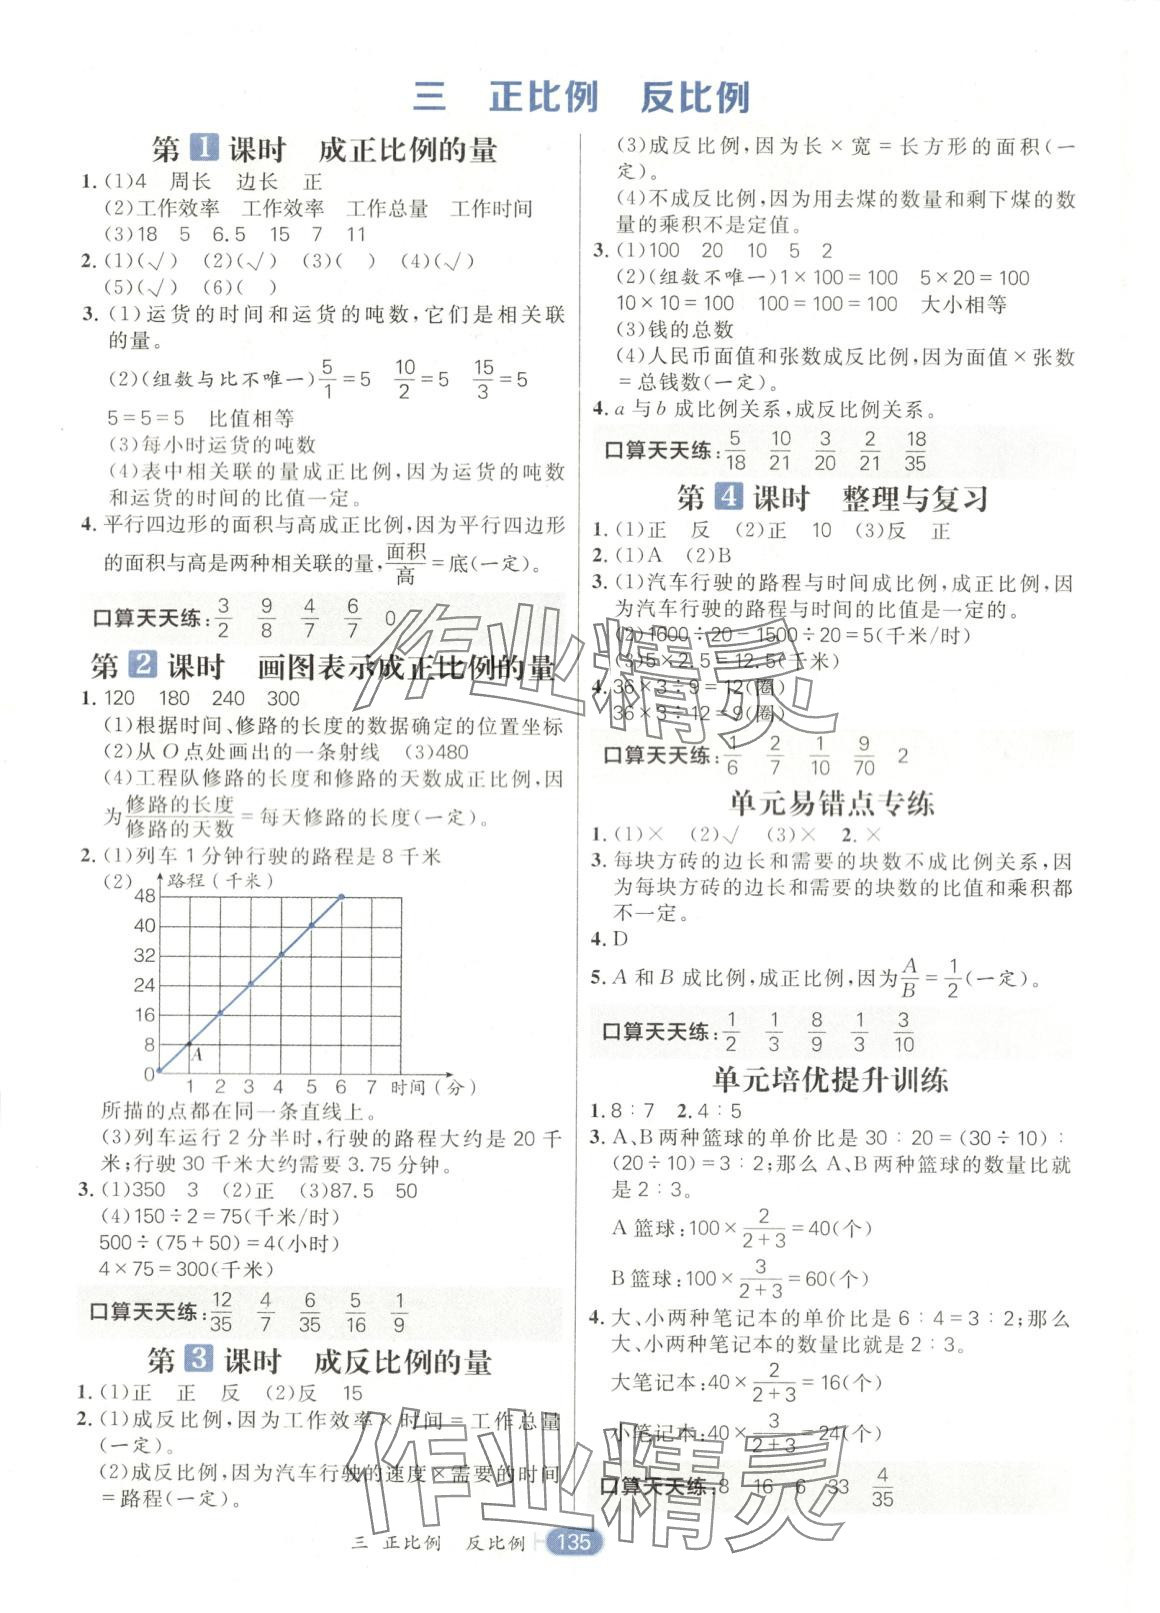 三 正比例 反比例
第1课时 成正比例的量
1. (1)4 周长 边长 正
(2)工作效率 工作效率 工作总量 工作时间
(3)18 5 6.5 15 7 11
2. (1)(√) (2)(√) (3)( ) (4)(√)
(5)(√) (6)( )
3. (1)运货的时间和运货的吨数,它们是相关联
的量。
(2)(组数与比不唯一)5/1=5 10/2=5 15/3=5
5=5=5 比值相等
(3)每小时运货的吨数
(4)表中相关联的量成正比例,因为运货的吨数
和运货的时间的比值一定。
4. 平行四边形的面积与高成正比例,因为平行四边形
的面积与高是两种相关联的量,面积/高=底(一定)。
口算天天练: 3/2 9/8 4/7 6/7 0
第2课时 画图表示成正比例的量
1. 120 180 240 300
(1)根据时间、修路的长度的数据确定的位置坐标
(2)从O点处画出的一条射线 (3)480
(4)工程队修路的长度和修路的天数成正比例,因
为修路的长度/修路的天数=每天修路的长度(一定)。
2. (1)列车1分钟行驶的路程是8千米
(2) 路程(千米)
48
40
32
24
16
8
A
0 1 2 3 4 5 6 7 时间(分)
所描的点都在同一条直线上。
(3)列车运行2分半时,行驶的路程大约是20千
米;行驶30千米大约需要3.75分钟。
3. (1)350 3 (2)正 (3)87.5 50
(4)150÷2=75(千米/时)
500÷(75+50)=4(小时)
4×75=300(千米)
口算天天练: 12/35 4/7 6/35 5/16 1/9
第3课时 成反比例的量
1. (1)正 正 反 (2)反 15
2. (1)成反比例,因为工作效率×时间=工作总量
(一定)。
(2)成反比例,因为汽车行驶的速度×需要的时间
=路程(一定)。
(3)成反比例,因为长×宽=长方形的面积(一
定)。
(4)不成反比例,因为用去煤的数量和剩下煤的数
量的乘积不是定值。
3. (1)100 20 10 5 2
(2)(组数不唯一)1×100=100 5×20=100
10×10=100 100=100=100 大小相等
(3)钱的总数
(4)人民币面值和张数成反比例,因为面值×张数
=总钱数(一定)。
4. a与b成比例关系,成反比例关系。
口算天天练: 5/18 10/21 3/20 2/21 18/35
第4课时 整理与复习
1. (1)正 反 (2)正 10 (3)反 正
2. (1)A (2)B
3. (1)汽车行驶的路程与时间成比例,成正比例,因
为汽车行驶的路程与时间的比值是一定的。
(2)1600÷20-1500÷20=5(千米/时)
(3)5×2.5=12.5(千米)
4. 36×3÷9=12(圈)
36×3÷12=9(圈)
口算天天练: 1/6 2/7 1/10 9/70 2
单元易错点专练
1. (1)× (2)√ (3)× 2. ×
3. 每块方砖的边长和需要的块数不成比例关系,因
为每块方砖的边长和需要的块数的比值和乘积都
不一定。
4. D
5. A和B成比例,成正比例,因为A/B=1/2(一定)。
口算天天练: 1/2 1/3 8/9 1/3 3/10
单元培优提升训练
1. 8∶7 2. 4∶5
3. A、B两种篮球的单价比是30∶20=(30÷10)∶
(20÷10)=3∶2;那么A、B两种篮球的数量比就
是2∶3。
A篮球:100×2/(2+3)=40(个)
B篮球:100×3/(2+3)=60(个)
4. 大、小两种笔记本的单价比是6∶4=3∶2;那么
大、小两种笔记本的数量比就是2∶3。
大笔记本:40×2/(2+3)=16(个)
小笔记本:40×3/(2+3)=24(个)
口算天天练: 8 16 6 33 4/35
三 正比例 反比例 135
作业精灵
作业精灵